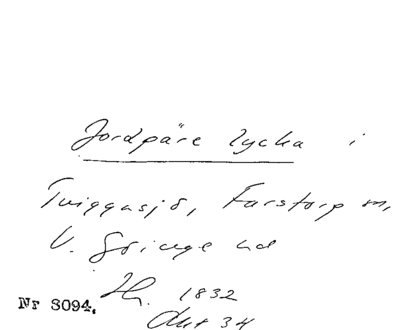 Jordpäre lycka i
Tviggasjö, Farstorp m,
V. Göinge hd
Hl. 1832
Akt 34
Nr 3094.